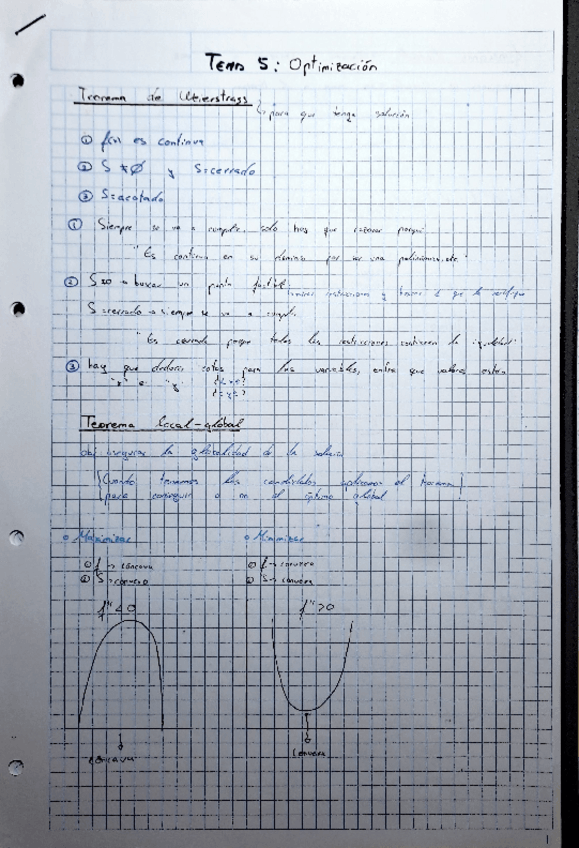 TEMA 5: Optimización
Teorema de Weierstrass → para que tenga solución
① f(x) es continua
② S ≠ ∅ y S=cerrado
③ S=acotado
① Siempre se va a cumplir, solo hay que razonar porque
"Es continua en su dominio por ser una polinómica, etc."
② S≠∅ → buscar un punto factible
S=cerrado → siempre se va a cumplir
"Es cerrado porque todas las restricciones contienen la igualdad"
③ hay que deducir cotas para las variables, entre que valores están
"x" e "y" ? ≤ x ≤ ?
? ≤ y ≤ ?
Teorema local-global
asegurar la globalidad de la
Cuando tenemos los candidatos aplicamos el teorema
para conseguir o no el óptimo global
o Maximizar o Minimizar
① f → cóncava ① f → convexa
② S → convexo ② S → convexo
f'' < 0 f'' > 0
cóncava convexa